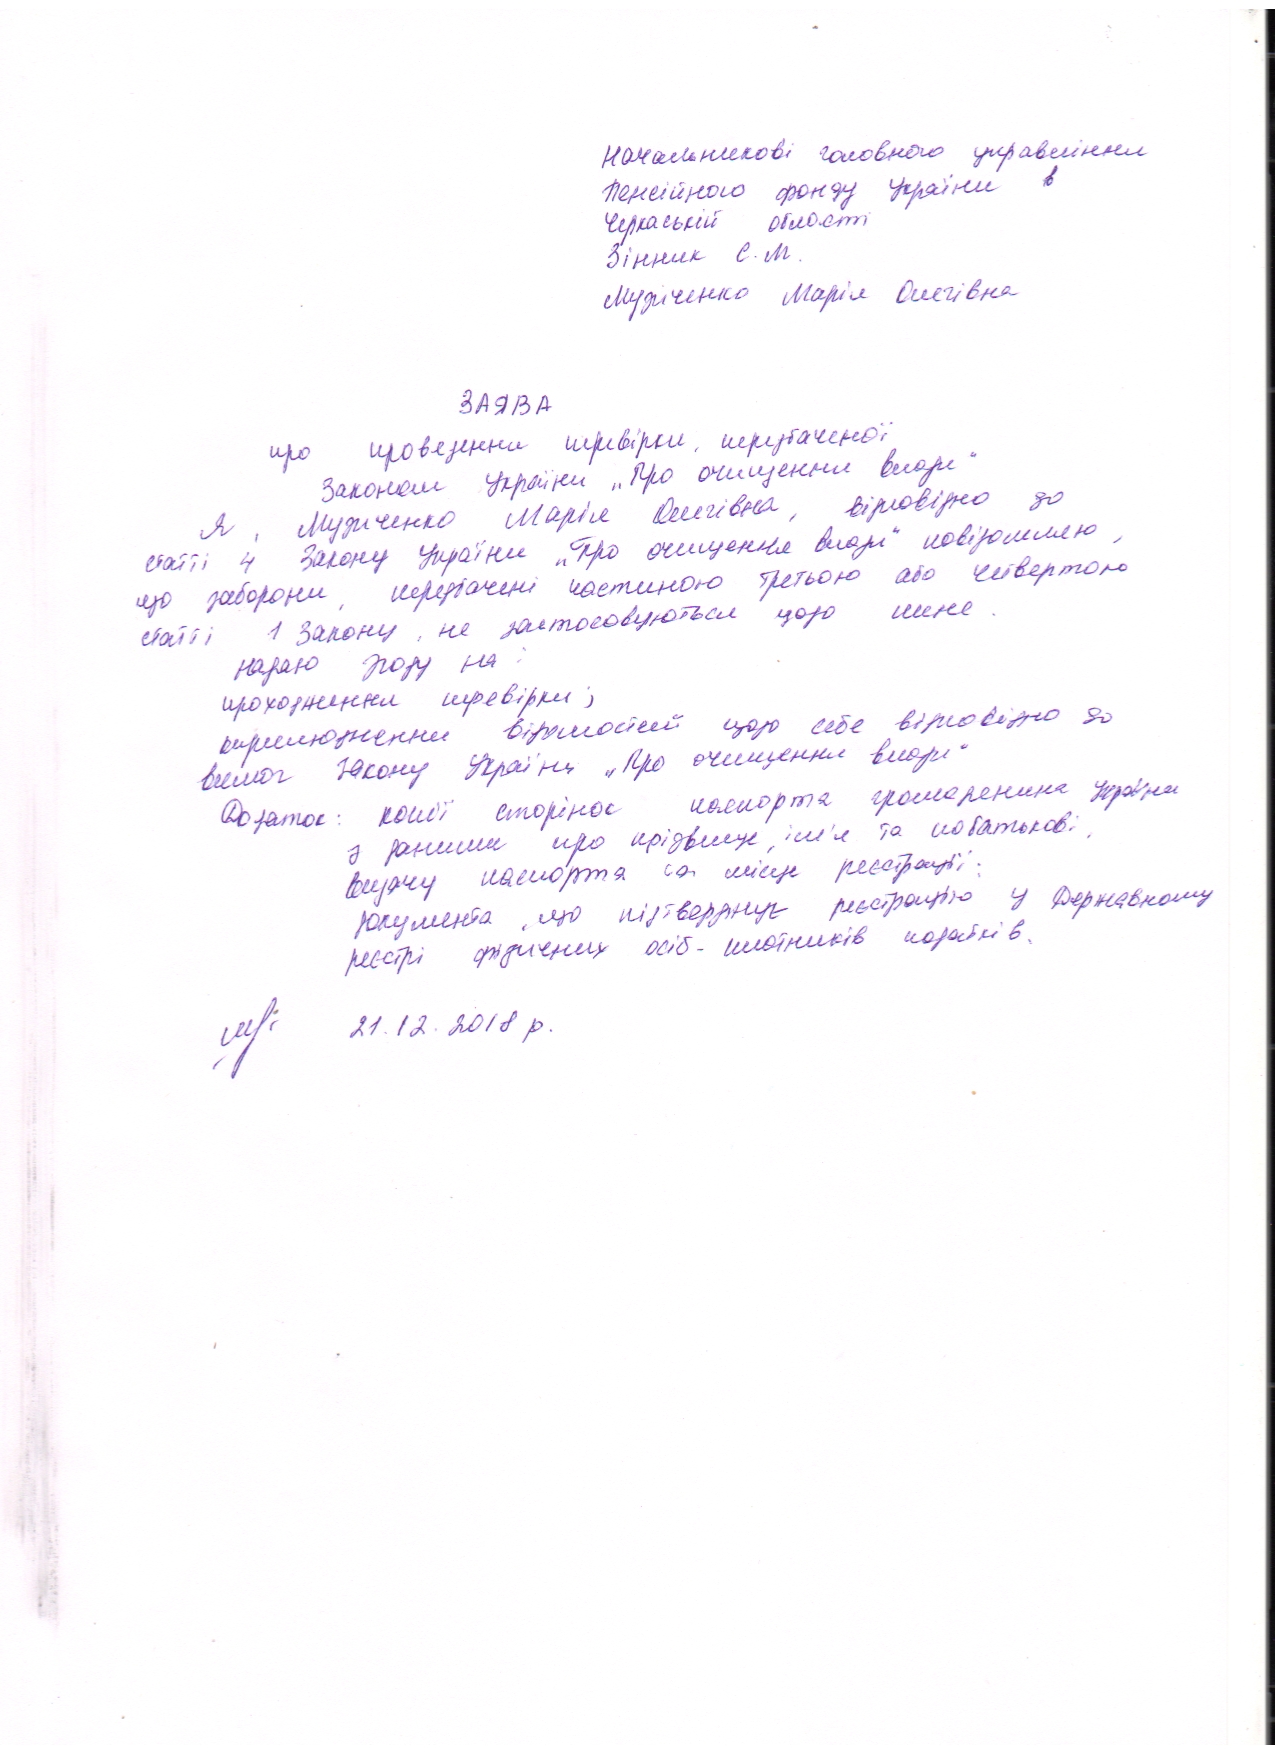 Начальникові головного управління
Пенсійного фонду України в
Черкаській області
Зінник С.М.
Музиченко Марія Олегівна
ЗАЯВА
про проведення перевірки, передбаченої
Законом України „Про очищення влади"
Я, Музиченко Марія Олегівна, відповідно до
статті 4 Закону України „Про очищення влади" повідомляю,
що заборони, передбачені частиною третьою або четвертою
статті 1 Закону, не застосовуються щодо мене.
Надаю згоду на:
проходження перевірки;
оприлюднення відомостей щодо себе відповідно до
вимог Закону України „Про очищення влади"
Додаток: копії сторінок паспорта громадянина України
з даними про прізвище, ім'я та по батькові,
видачу паспорта та місце реєстрації;
документа, що підтверджує реєстрацію у Державному
реєстрі фізичних осіб-платників податків.
21.12.2018 р.